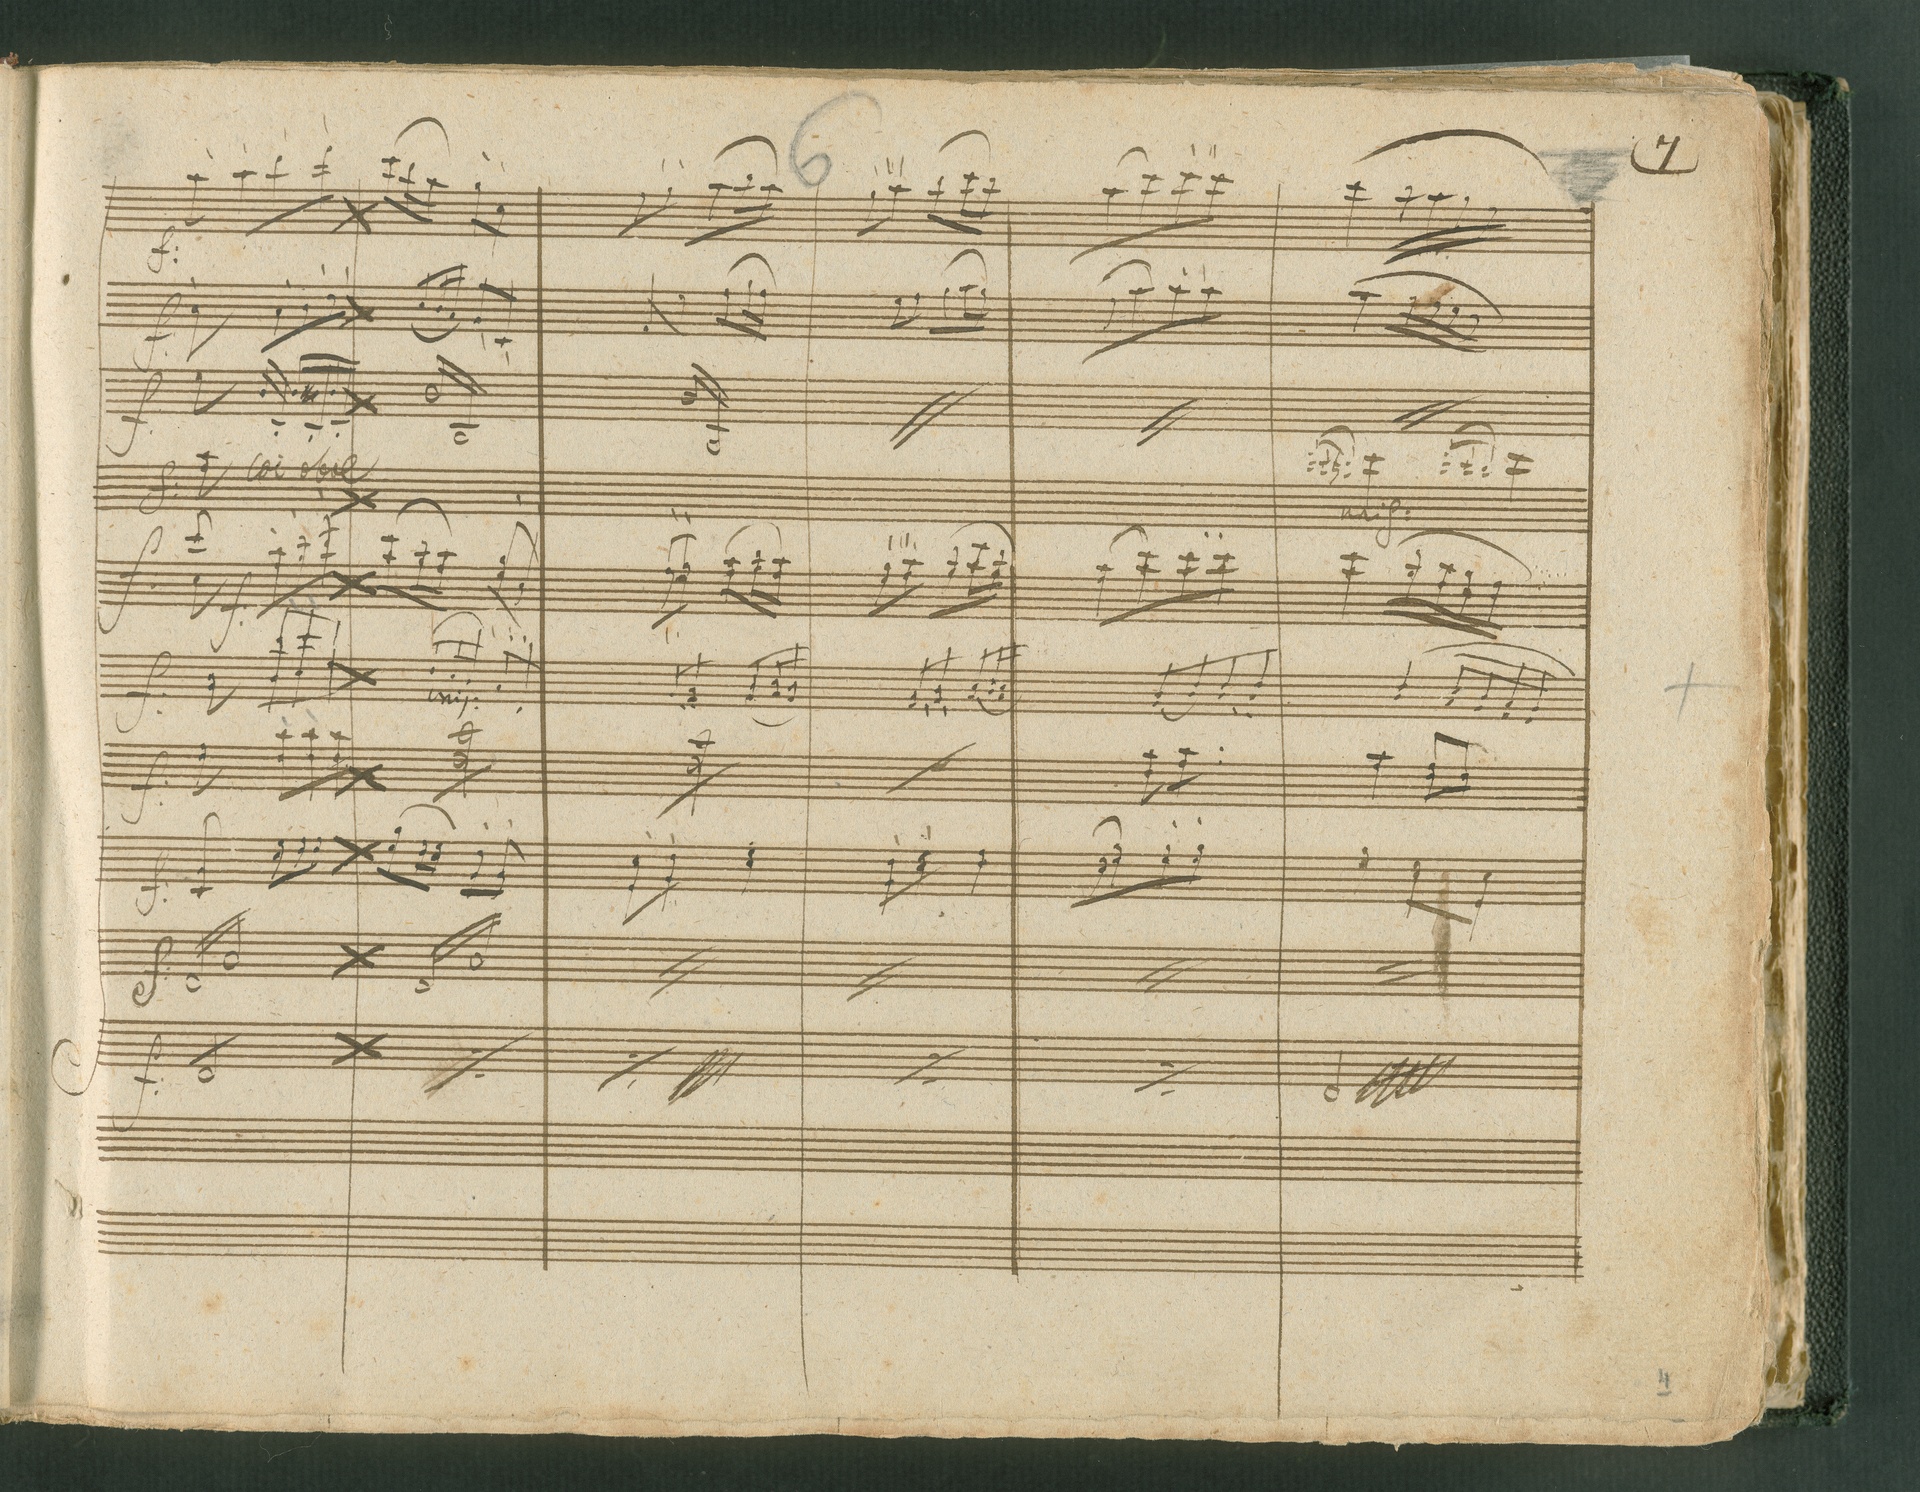 6
7
f:
f:
f:
f: coi oboe
unis:
f f:
f: unis:
f:
f:
f:
f:
4